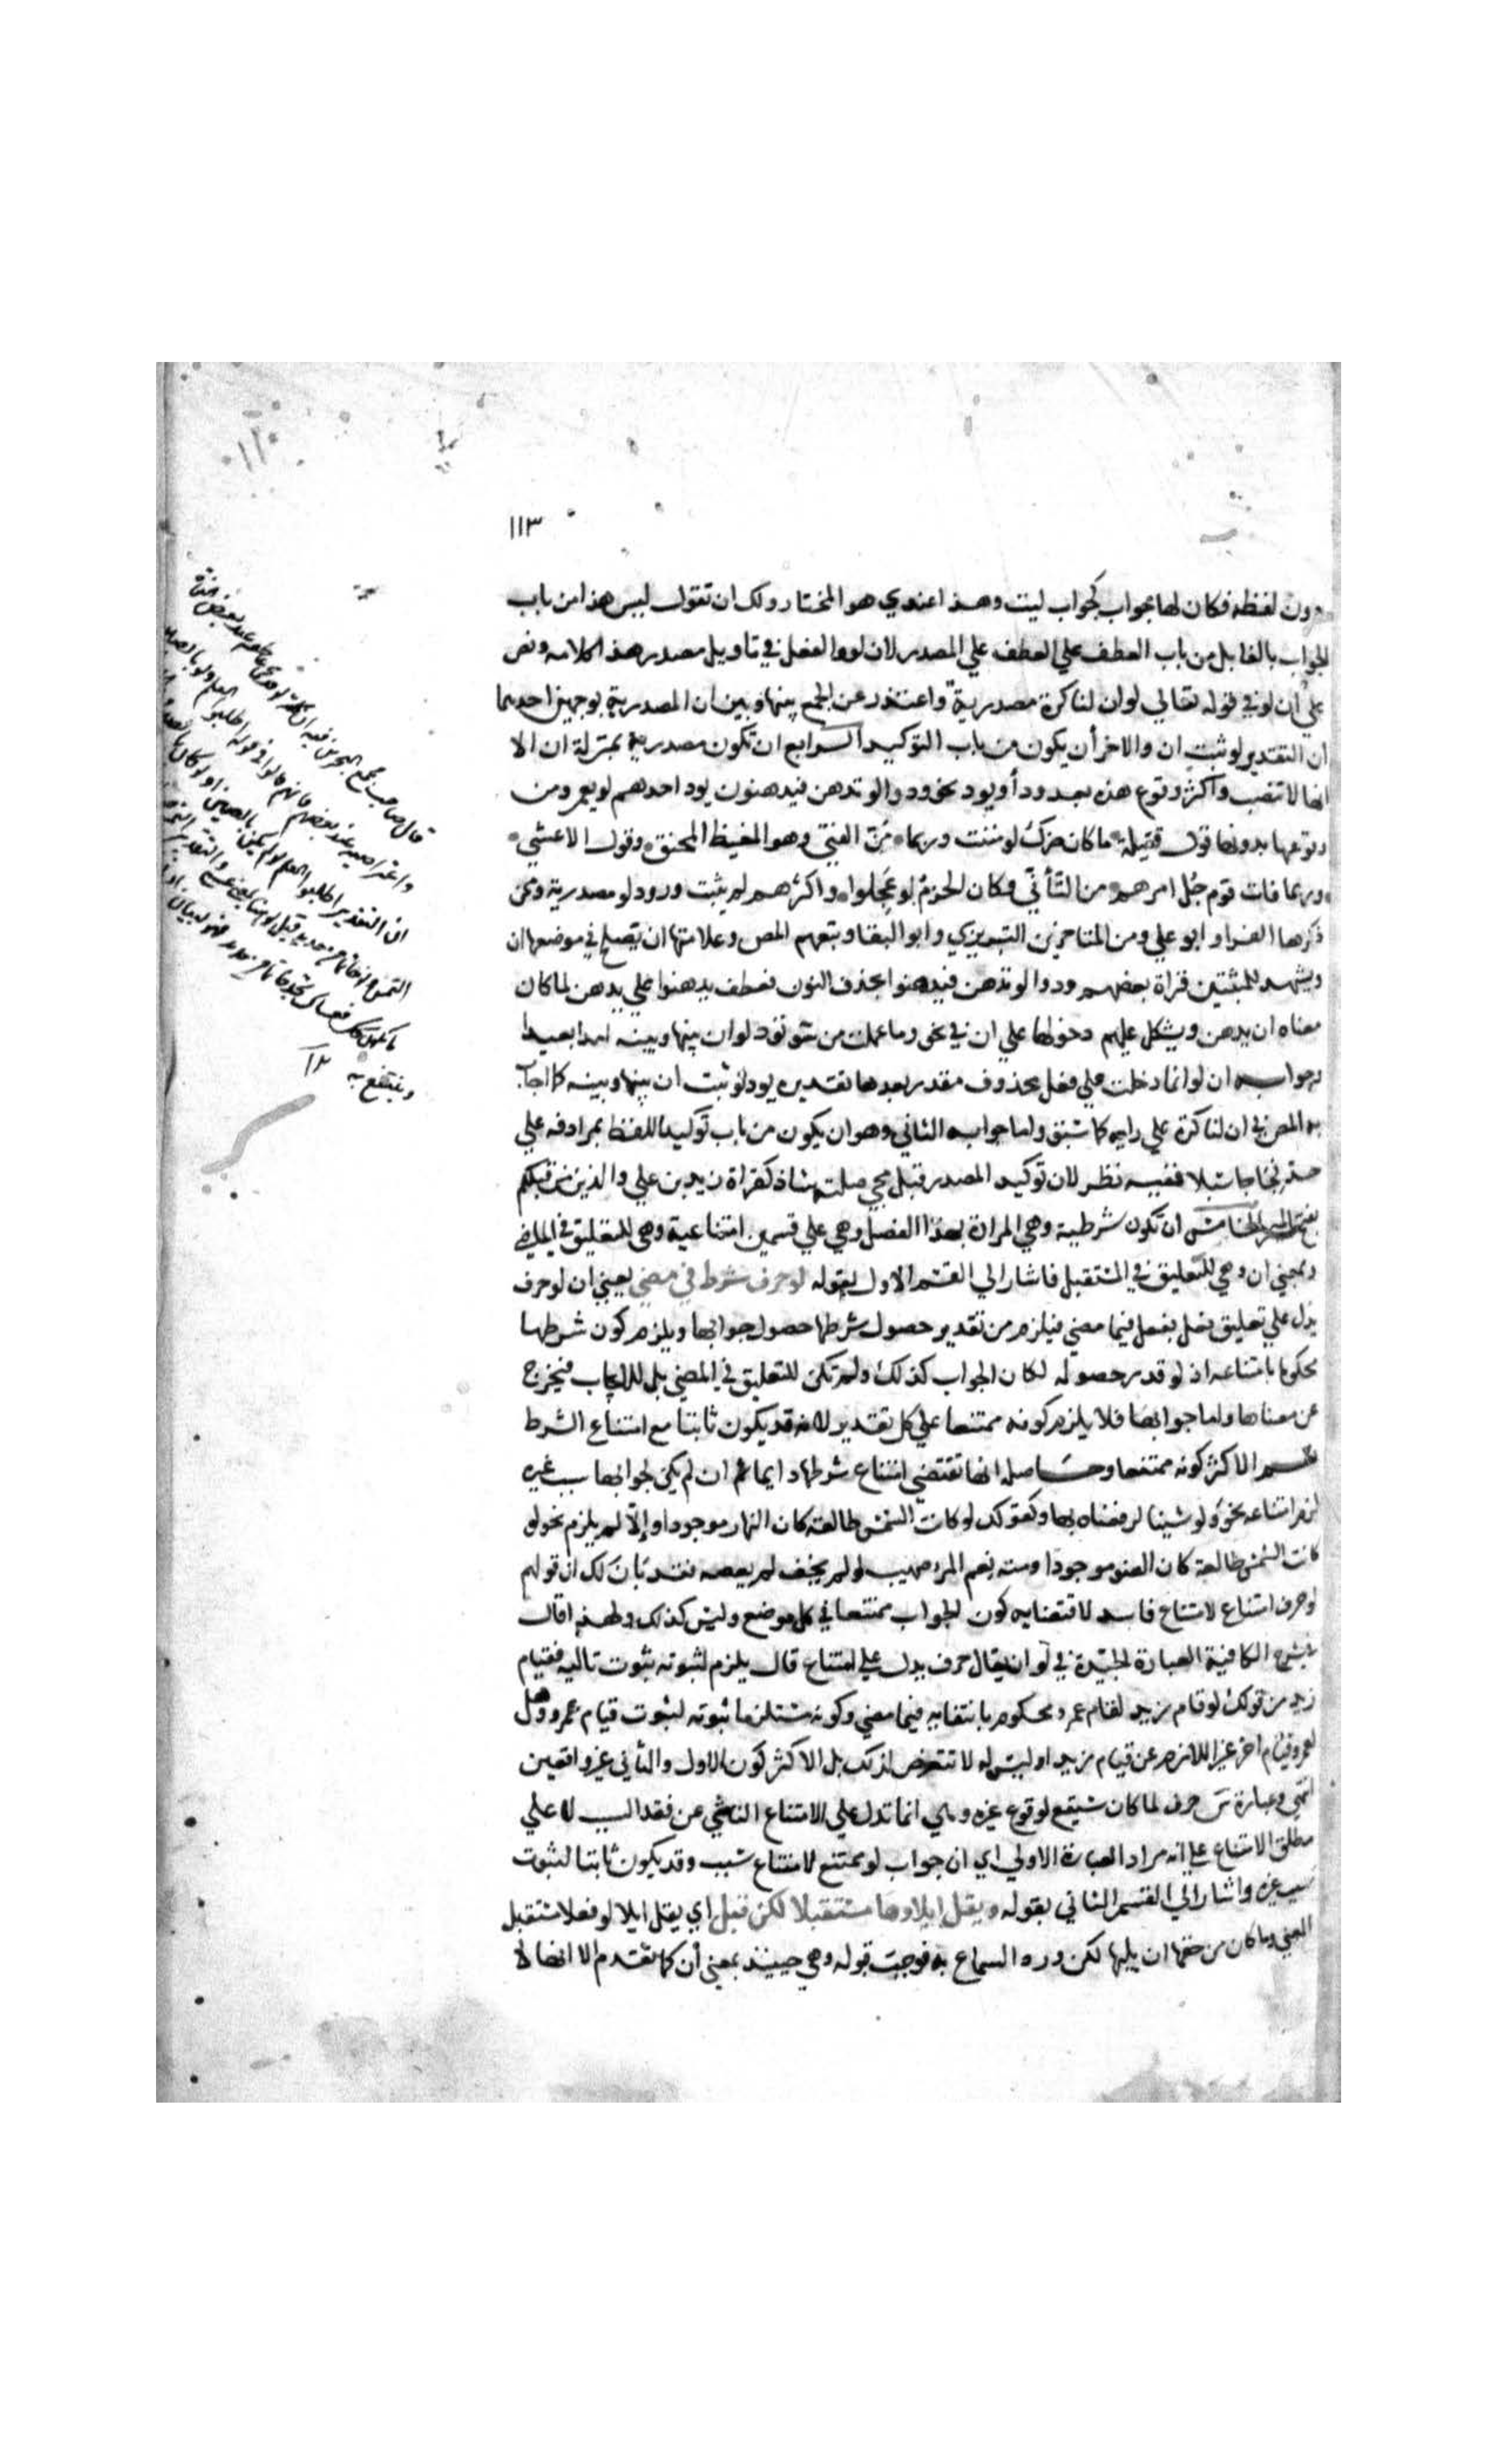 ١١٣
دون لفظه فكان لها جواب كجواب ليت وهذا عندي هو المختار ولك ان تقول ليس هذا من باب
الجواب بالفا بل من باب العطف علي العطف علي المصدر لان لو والفعل في تاويل مصدر هذا كلامه ونص
علي أن لو في قوله تعالي لو ان لنا كرة مصدرية واعتذر عن الجمع بينها وبين ان المصدرية بوجهين احدهما
أن التقدير لو ثبت ان والاخر أن يكون من باب التوكيد الرابع ان تكون مصدرية بمنزلة ان الا
انها لا تنصب واكثر وقوع هذه بعد ود أو يود نحو ودوا لو تدهن فيدهنون يود احدهم لو يعمر ومن
وقوعها بدونها قول قتيلة ما كان ضرك لو مننت وربما من الفتي وهو المغيظ المحنق وقول الاعشي
وربما فات قوم جُل امرهم من التأني وكان الحزمُ لو عَجِلوا واكثرهم لم يثبت ورود لو مصدرية وممن
ذكرها الفراء وابو علي ومن المتاخرين التبريزي وابو البقا وتبعهم المص وعلامتها ان يصلح في موضعها ان
ويشهد للمثبتين قراة بعضهم ودوا لو تدهن فيدهنوا بحذف النون فعطف يدهنوا علي يدهن لما كان
معناه ان يدهن ويشكل عليهم دخولها علي ان في نحو وما عملت من سو تود لو ان بينها وبينه امدا بعيدا
وجوابه ان لو انما دخلت علي فعل محذوف مقدر بعدها تقديره يود لو ثبت ان بينها وبينه كما اجاب
به المص في ان لنا كرة علي رايه كما سبق واما جوابه الثاني وهو ان يكون من باب توكيد اللفظ بمرادفه علي
حد فجاجا سبلا ففيه نظر لان توكيد المصدر قبل مجي صلته شاذ كقراة زيد بن علي والذين من قبلكم
بفتح الميم الخامس أن تكون شرطية وهي المرادة بهذا الفصل وهي علي قسمين امتناعية وهي للتعليق في الماضي
وبمعني ان وهي للتعليق في المستقبل فاشار الي القسم الاول بقوله لو حرف شرط في مضي يعني ان لو حرف
يدل علي تعليق فعل بفعل فيما مضي فيلزم من تقدير حصول شرطها حصول جوابها ويلزم كون شرطها
محكوما بامتناعه اذ لو قدر حصوله لكان الجواب كذلك ولم تكن للتعليق في المضي بل للايجاب فتخرج
عن معناها واما جوابها فلا يلزم كونه ممتنعا علي كل تقدير لانه قد يكون ثابتا مع امتناع الشرط
نعم الاكثر كونه ممتنعا وحاصله انها تقتضي امتناع شرطها دايما ثم ان لم يكن لجوابها سبب غيره
لزم امتناعه نحو ولو شينا لرفعناه بها وكقولك لو كانت الشمس طالعة كان النهار موجودا وإلا لم يلزم نحو لو
كانت الشمس طالعة كان الضو موجودا ومنه نعم المر صهيب لو لم يخف لم يعصه فقد بان لك ان قولهم
لو حرف امتناع لامتناع فاسد لاقتضايه كون الجواب ممتنعا في كل موضع وليس كذلك ولهذا قال
في شرح الكافية العبارة الجيدة في لو ان يقال حرف يدل علي امتناع قال يلزم لثبوته ثبوت تاليه فقيام
زيد من قولك لو قام زيد لقام عمرو محكوم بانتفايه فيما مضي وكونه مستلزما ثبوته لثبوت قيام عمرو وهل
لعمرو قيام اخر غير اللازم عن قيام زيد او ليس له لا تتعرض لذلك بل الاكثر كون الاول والثاني غير واقعين
انتهي وعبارة س حرف لما كان سيقع لوقوع غيره وهي انما تدل علي الامتناع الناشي عن فقد السبب لا علي
مطلق الامتناع علي انه مراد العبارة الاولي اي ان جواب لو ممتنع لامتناع سبب وقد يكون ثابتا لثبوت
سبب غيره واشار الي القسم الثاني بقوله ويقل ايلاوها مستقبلا لكن قبل اي يقل ايلا لو فعلا مستقبل
المعني وما كان من حقها ان يليها لكن ورد السماع به فوجب قبوله وهي حينيذ بمعني أن كما تقدم الا انها لا
وينتفع به ١٢